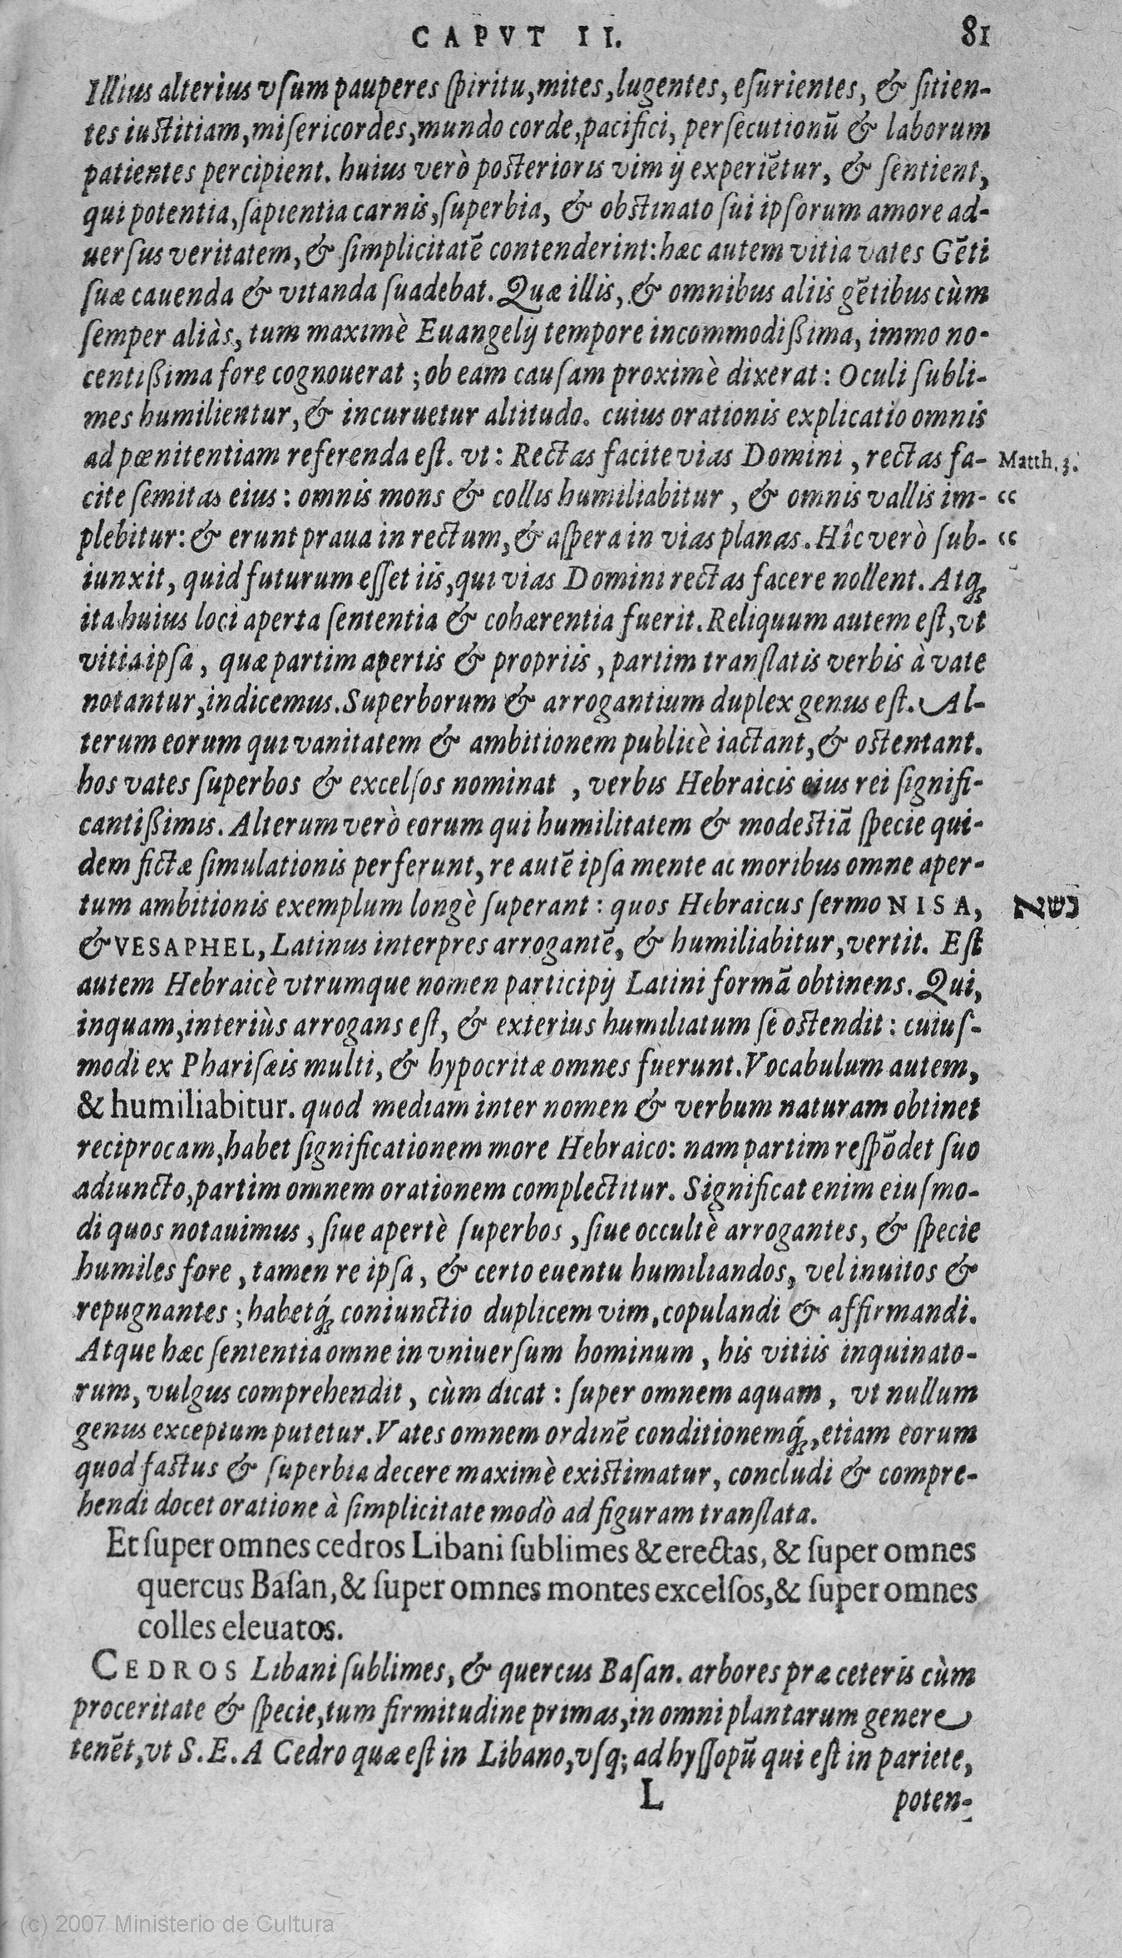 CAPVT II. 81
Illius alterius vſum pauperes ſpiritu, mites, lugentes, eſurientes, & ſitien-
tes iuſtitiam, miſericordes, mundo corde, pacifici, perſecutionũ & laborum
patientes percipient. huius verò poſterioris vim ij experiẽtur, & ſentient,
qui potentia, ſapientia carnis, ſuperbia, & obſtinato ſui ipſorum amore ad-
uerſus veritatem, & ſimplicitatẽ contenderint: hæc autem vitia vates Gẽti
ſuæ cauenda & vitanda ſuadebat. Quæ illis, & omnibus aliis gẽtibus cùm
ſemper aliàs, tum maximè Euangelij tempore incommodiſſima, immo no-
centiſſima fore cognouerat; ob eam cauſam proximè dixerat: Oculi ſubli-
mes humilientur, & incuruetur altitudo. cuius orationis explicatio omnis
ad pœnitentiam referenda eſt. vt: Rectas facite vias Domini, rectas fa- Matth. 3.
cite ſemitas eius: omnis mons & collis humiliabitur, & omnis vallis im- “
plebitur: & erunt praua in rectum, & aſpera in vias planas. Hîc verò ſub- “
iunxit, quid futurum eſſet iis, qui vias Domini rectas facere nollent. Atq;
ita huius loci aperta ſententia & cohærentia fuerit. Reliquum autem eſt, vt
vitia ipſa, quæ partim apertis & propriis, partim tranſlatis verbis à vate
notantur, indicemus. Superborum & arrogantium duplex genus eſt. Al-
terum eorum qui vanitatem & ambitionem publicè iactant, & oſtentant.
hos vates ſuperbos & excelſos nominat, verbis Hebraicis eius rei ſignifi-
cantiſſimis. Alterum verò eorum qui humilitatem & modeſtiã ſpecie qui-
dem fictæ ſimulationis perferunt, re autẽ ipſa mente ac moribus omne aper-
tum ambitionis exemplum longè ſuperant: quos Hebraicus ſermo NISA, נשא
& VESAPHEL, Latinus interpres arrogantẽ, & humiliabitur, vertit. Eſt
autem Hebraicè vtrumque nomen participij Latini formã obtinens. Qui,
inquam, interiùs arrogans eſt, & exterius humiliatum ſe oſtendit: cuiuſ-
modi ex Phariſæis multi, & hypocritæ omnes fuerunt. Vocabulum autem,
& humiliabitur. quod mediam inter nomen & verbum naturam obtinet
reciprocam, habet ſignificationem more Hebraico: nam partim reſpõdet ſuo
adiuncto, partim omnem orationem complectitur. Significat enim eiuſmo-
di quos notauimus, ſiue apertè ſuperbos, ſiue occultè arrogantes, & ſpecie
humiles fore, tamen re ipſa, & certo euentu humiliandos, vel inuitos &
repugnantes; habetq́; coniunctio duplicem vim, copulandi & affirmandi.
Atque hæc ſententia omne in vniuerſum hominum, his vitiis inquinato-
rum, vulgus comprehendit, cùm dicat: ſuper omnem aquam, vt nullum
genus exceptum putetur. Vates omnem ordinẽ conditionemq́;, etiam eorum
quod faſtus & ſuperbia decere maximè exiſtimatur, concludi & compre-
hendi docet oratione à ſimplicitate modò ad figuram tranſlata.
Et ſuper omnes cedros Libani ſublimes & erectas, & ſuper omnes
quercus Baſan, & ſuper omnes montes excelſos, & ſuper omnes
colles eleuatos.
CEDROS Libani ſublimes, & quercus Baſan. arbores præ ceteris cùm
proceritate & ſpecie, tum firmitudine primas, in omni plantarum genere
tenẽt, vt S. E. A Cedro quæ eſt in Libano, vſq; ad hyſſopũ qui eſt in pariete,
L poten-
(c) 2007 Ministerio de Cultura